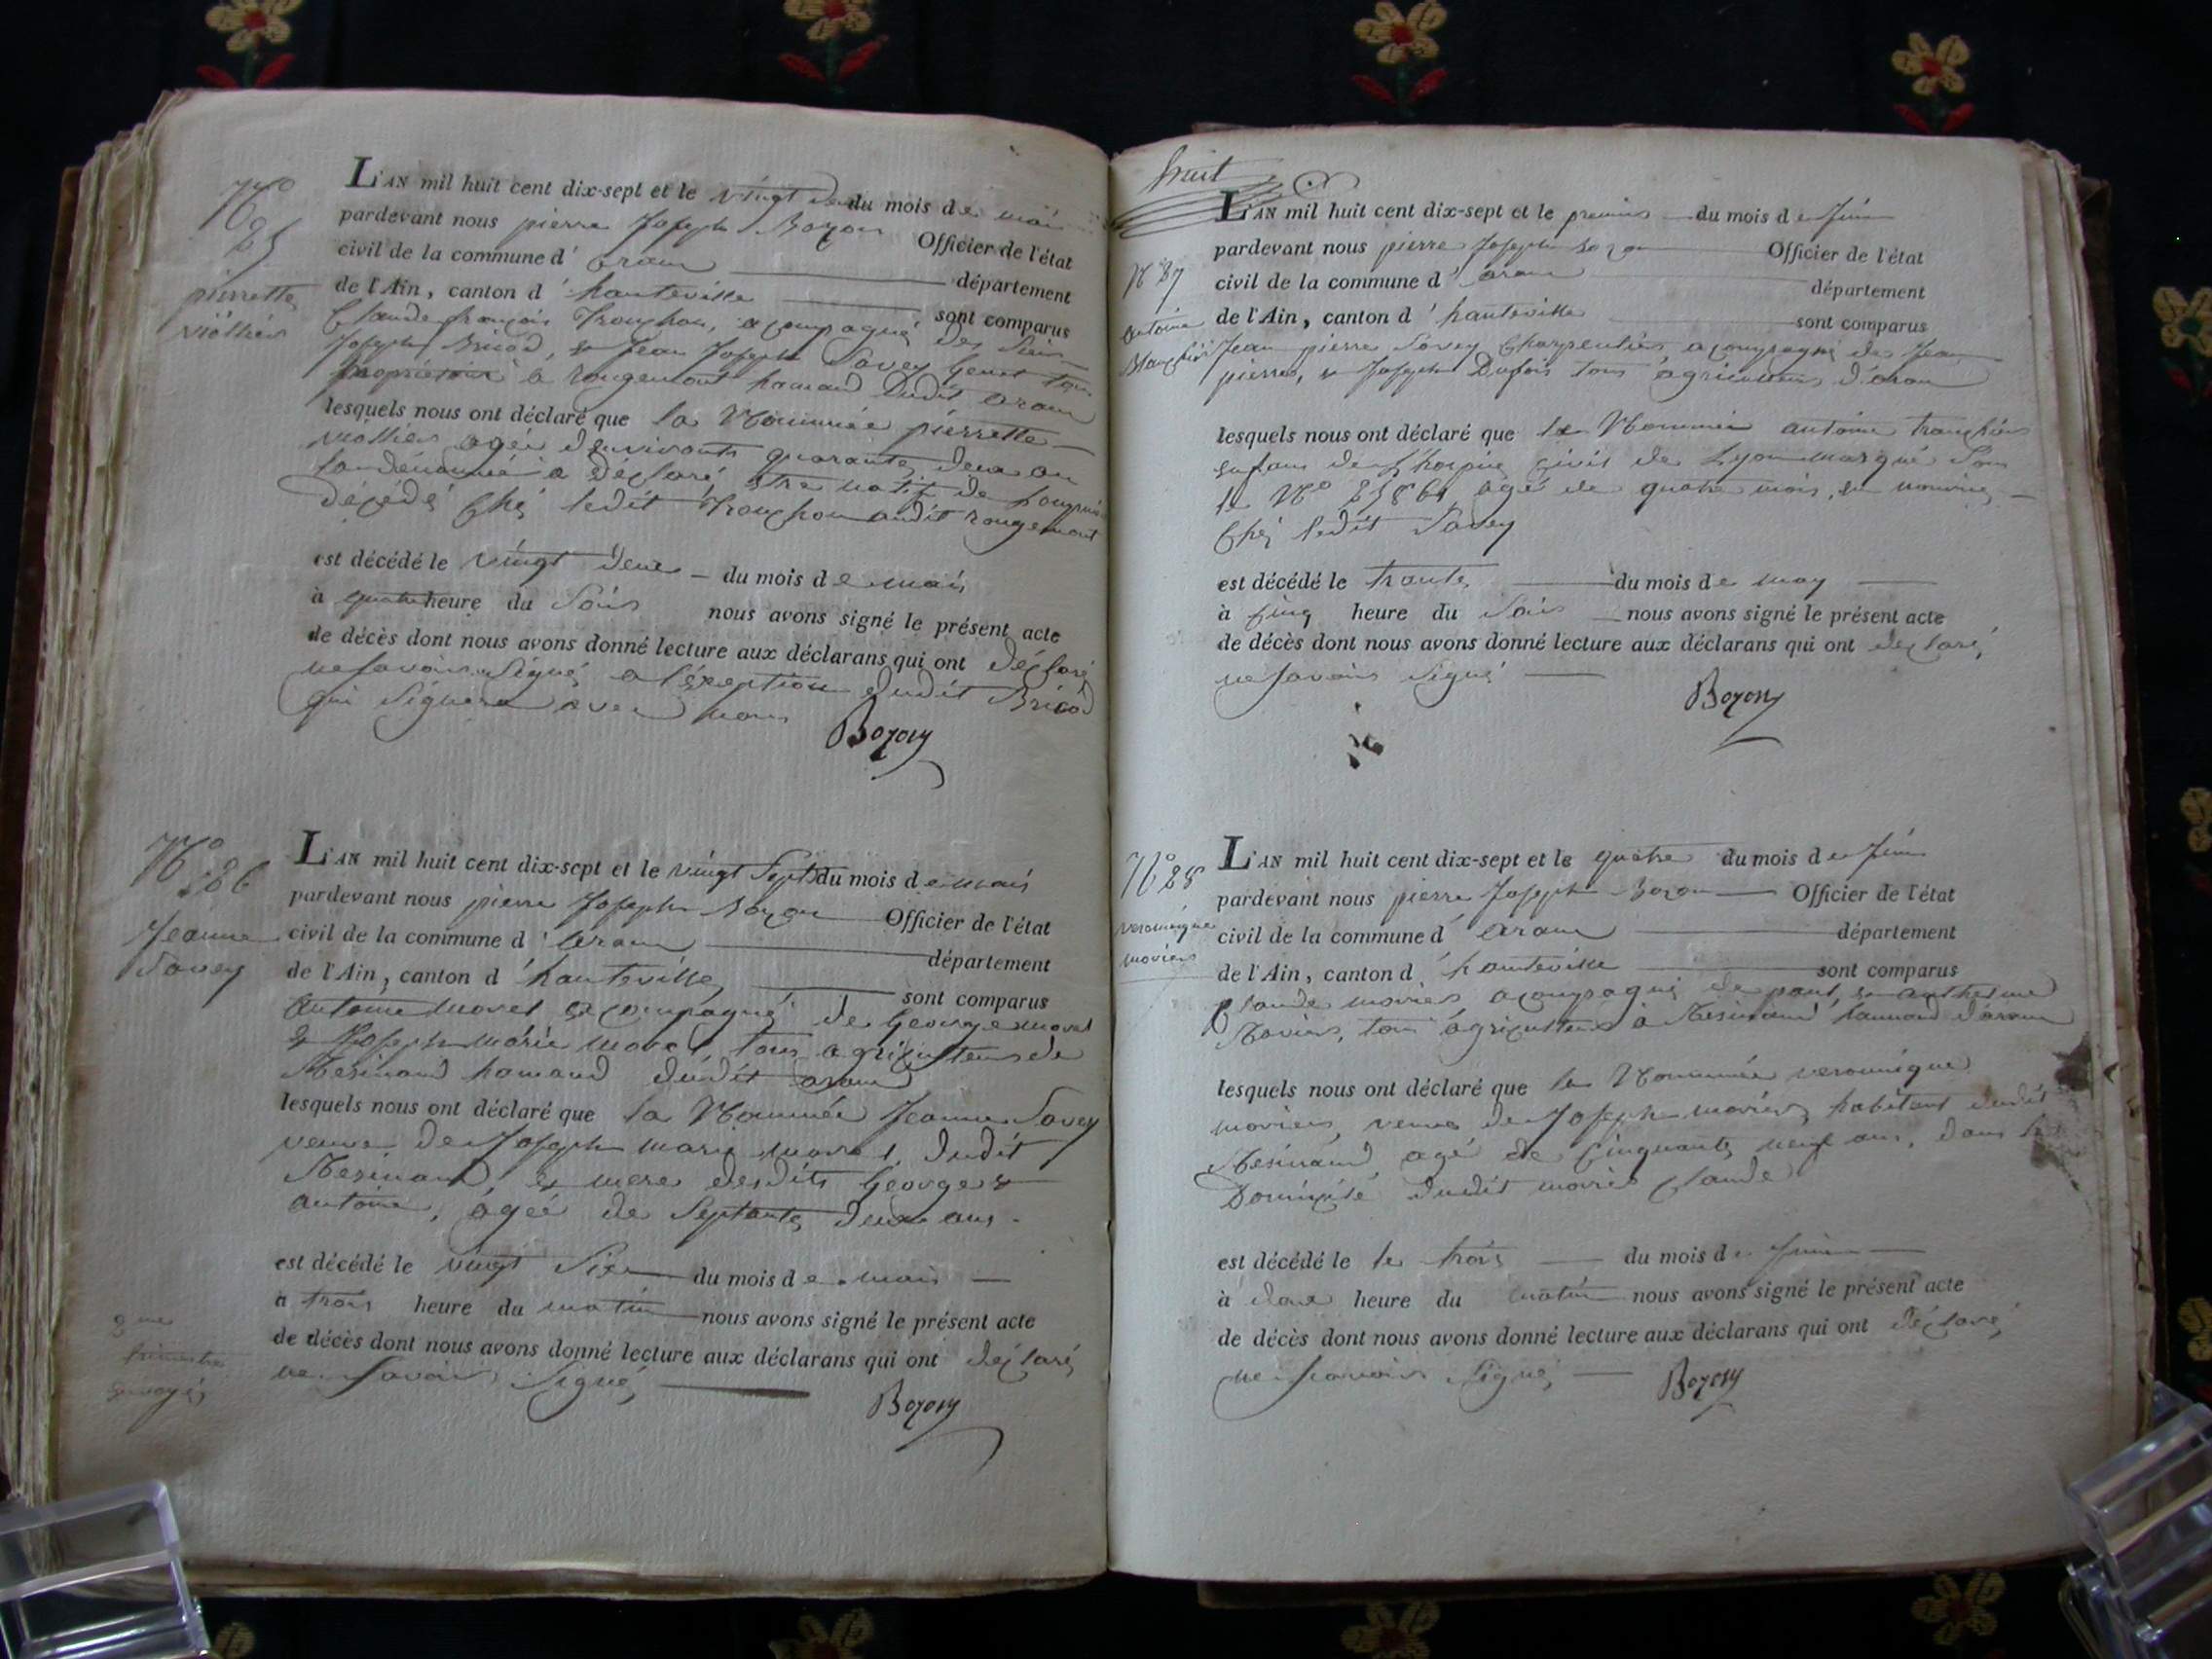 N°
25
pierrette
violliers
L'AN mil huit cent dix-sept et le vingt deux du mois de mai
pardevant nous pierre Joseph Bozon Officier de l'état
civil de la commune d' aranc
département
de l'Ain, canton d' hauteville sont comparus
Claude françois Trouchon, acompagné des Sieurs
Joseph Bricod, et Jean Joseph Savey Genet tous
propriétaire a rougemont hamaud dudit aranc
lesquels nous ont déclaré que la Nommée pierrette
violliers agée d'environts quarante deux an
décédé ché ledit Trouchon audit rougemont
est décédé le vingt deux du mois de mais
à quatre heure du Soirs nous avons signé le présent acte
de décès dont nous avons donné lecture aux déclarans qui ont déclaré
ne Savoirs Signé a l'éxeption dudit Bricod
qui Signera avec nous
Bozon
N°
26
Jeanne
Savey
L'AN mil huit cent dix-sept et le vingt Sept du mois de mais
pardevant nous pierre Joseph Bozon Officier de l'état
civil de la commune d' aranc
département
de l'Ain, canton d' hauteville sont comparus
antoine morel acompagné de George morel
& Joseph marie morel tous agriculteurs de
Résinand hamaud dudit aranc
lesquels nous ont déclaré que la Nommée Jeanne Savey
veuve de Joseph marie morel, dudit
Résinand, et mere desdits George et
antoine, agée de Septante deux ans.
est décédé le vingt Six du mois de mais
à trois heure du matin nous avons signé le présent acte
de décès dont nous avons donné lecture aux déclarans qui ont déclaré
ne Savoirs Signé
Bozon
huit
N° 27
antoine
L'AN mil huit cent dix-sept et le premier du mois de Juin
pardevant nous pierre Joseph Bozon Officier de l'état
civil de la commune d' aranc
département
de l'Ain, canton d' hauteville sont comparus
Jean pierre Savey Charpentier, acompagné de Jean
pierre, et Joseph Dufour tous agriculteurs d'aranc
lesquels nous ont déclaré que le Nommé antoine
enfant de l'hospice civil de Lyon marqué Sous
le N° agé de quatre mois, en nourrice
Ché ledit Savey
est décédé le trante du mois de may
à cinq heure du Soirs nous avons signé le présent acte
de décès dont nous avons donné lecture aux déclarans qui ont déclaré
ne Savoirs Signé
Bozon
N° 28
veronique
moviers
L'AN mil huit cent dix-sept et le quatre du mois de Juin
pardevant nous pierre Joseph Bozon Officier de l'état
civil de la commune d' aranc
département
de l'Ain, canton d' hauteville sont comparus
Claude moviers acompagné de paul, et anthelme
Moviers, tous agriculteurs à Résinand hamaud d'aranc
lesquels nous ont déclaré que la Nommée veronique
moviers, veuve de Joseph moviers habitant dudit
Résinand, agé de Cinquante neuf ans, dans le
Domicile dudit moviers Claude
est décédé le le trois du mois de Juin
à deux heure du matin nous avons signé le présent acte
de décès dont nous avons donné lecture aux déclarans qui ont déclaré
ne Savoirs Signé
Bozon